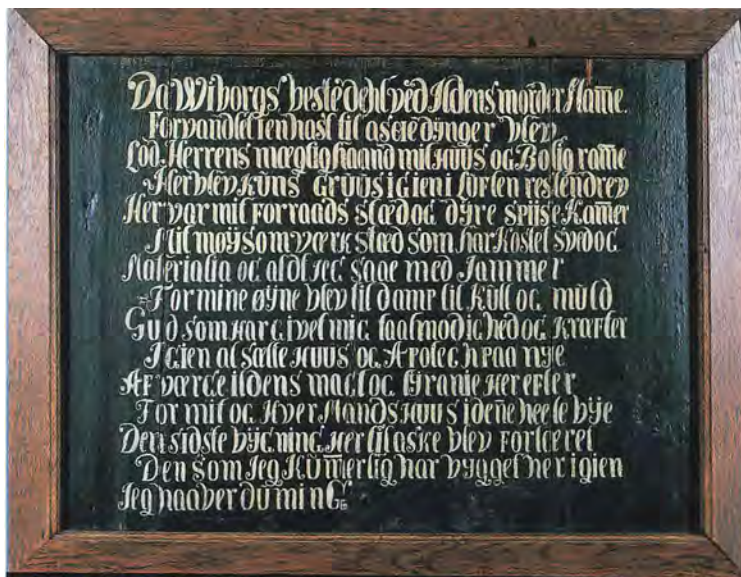 Da Wiborgs beste dehl ved Ildens morder flam̅e.
Forvandlet i en hast til aske dynger blev
Lod Herrens mægtig haand mit huus og Bolig ram̅e
Her blev kūns gruus igien i lüften resten drev
Her var mit forraads stæd og dÿre speise Kam̅er
Mit møÿsom værk stæd som har kostet sved og
Materialia og aldt jeg saae med Jammer
For mine øÿne blev til damp til Kūll og mūld
Gud som har givet mig taalmodighed og kræfter
Igien at sætte Huus og Apotech paa nÿe
Af værge ildens magt og tÿranie her efter
For mit og hver Mands huus i den̅e heele bÿe
Den sidste bÿgning her til aske blev forteret
Den som Jeg Küm̅erlig har bygget her igien
Jeg haaver dū min G